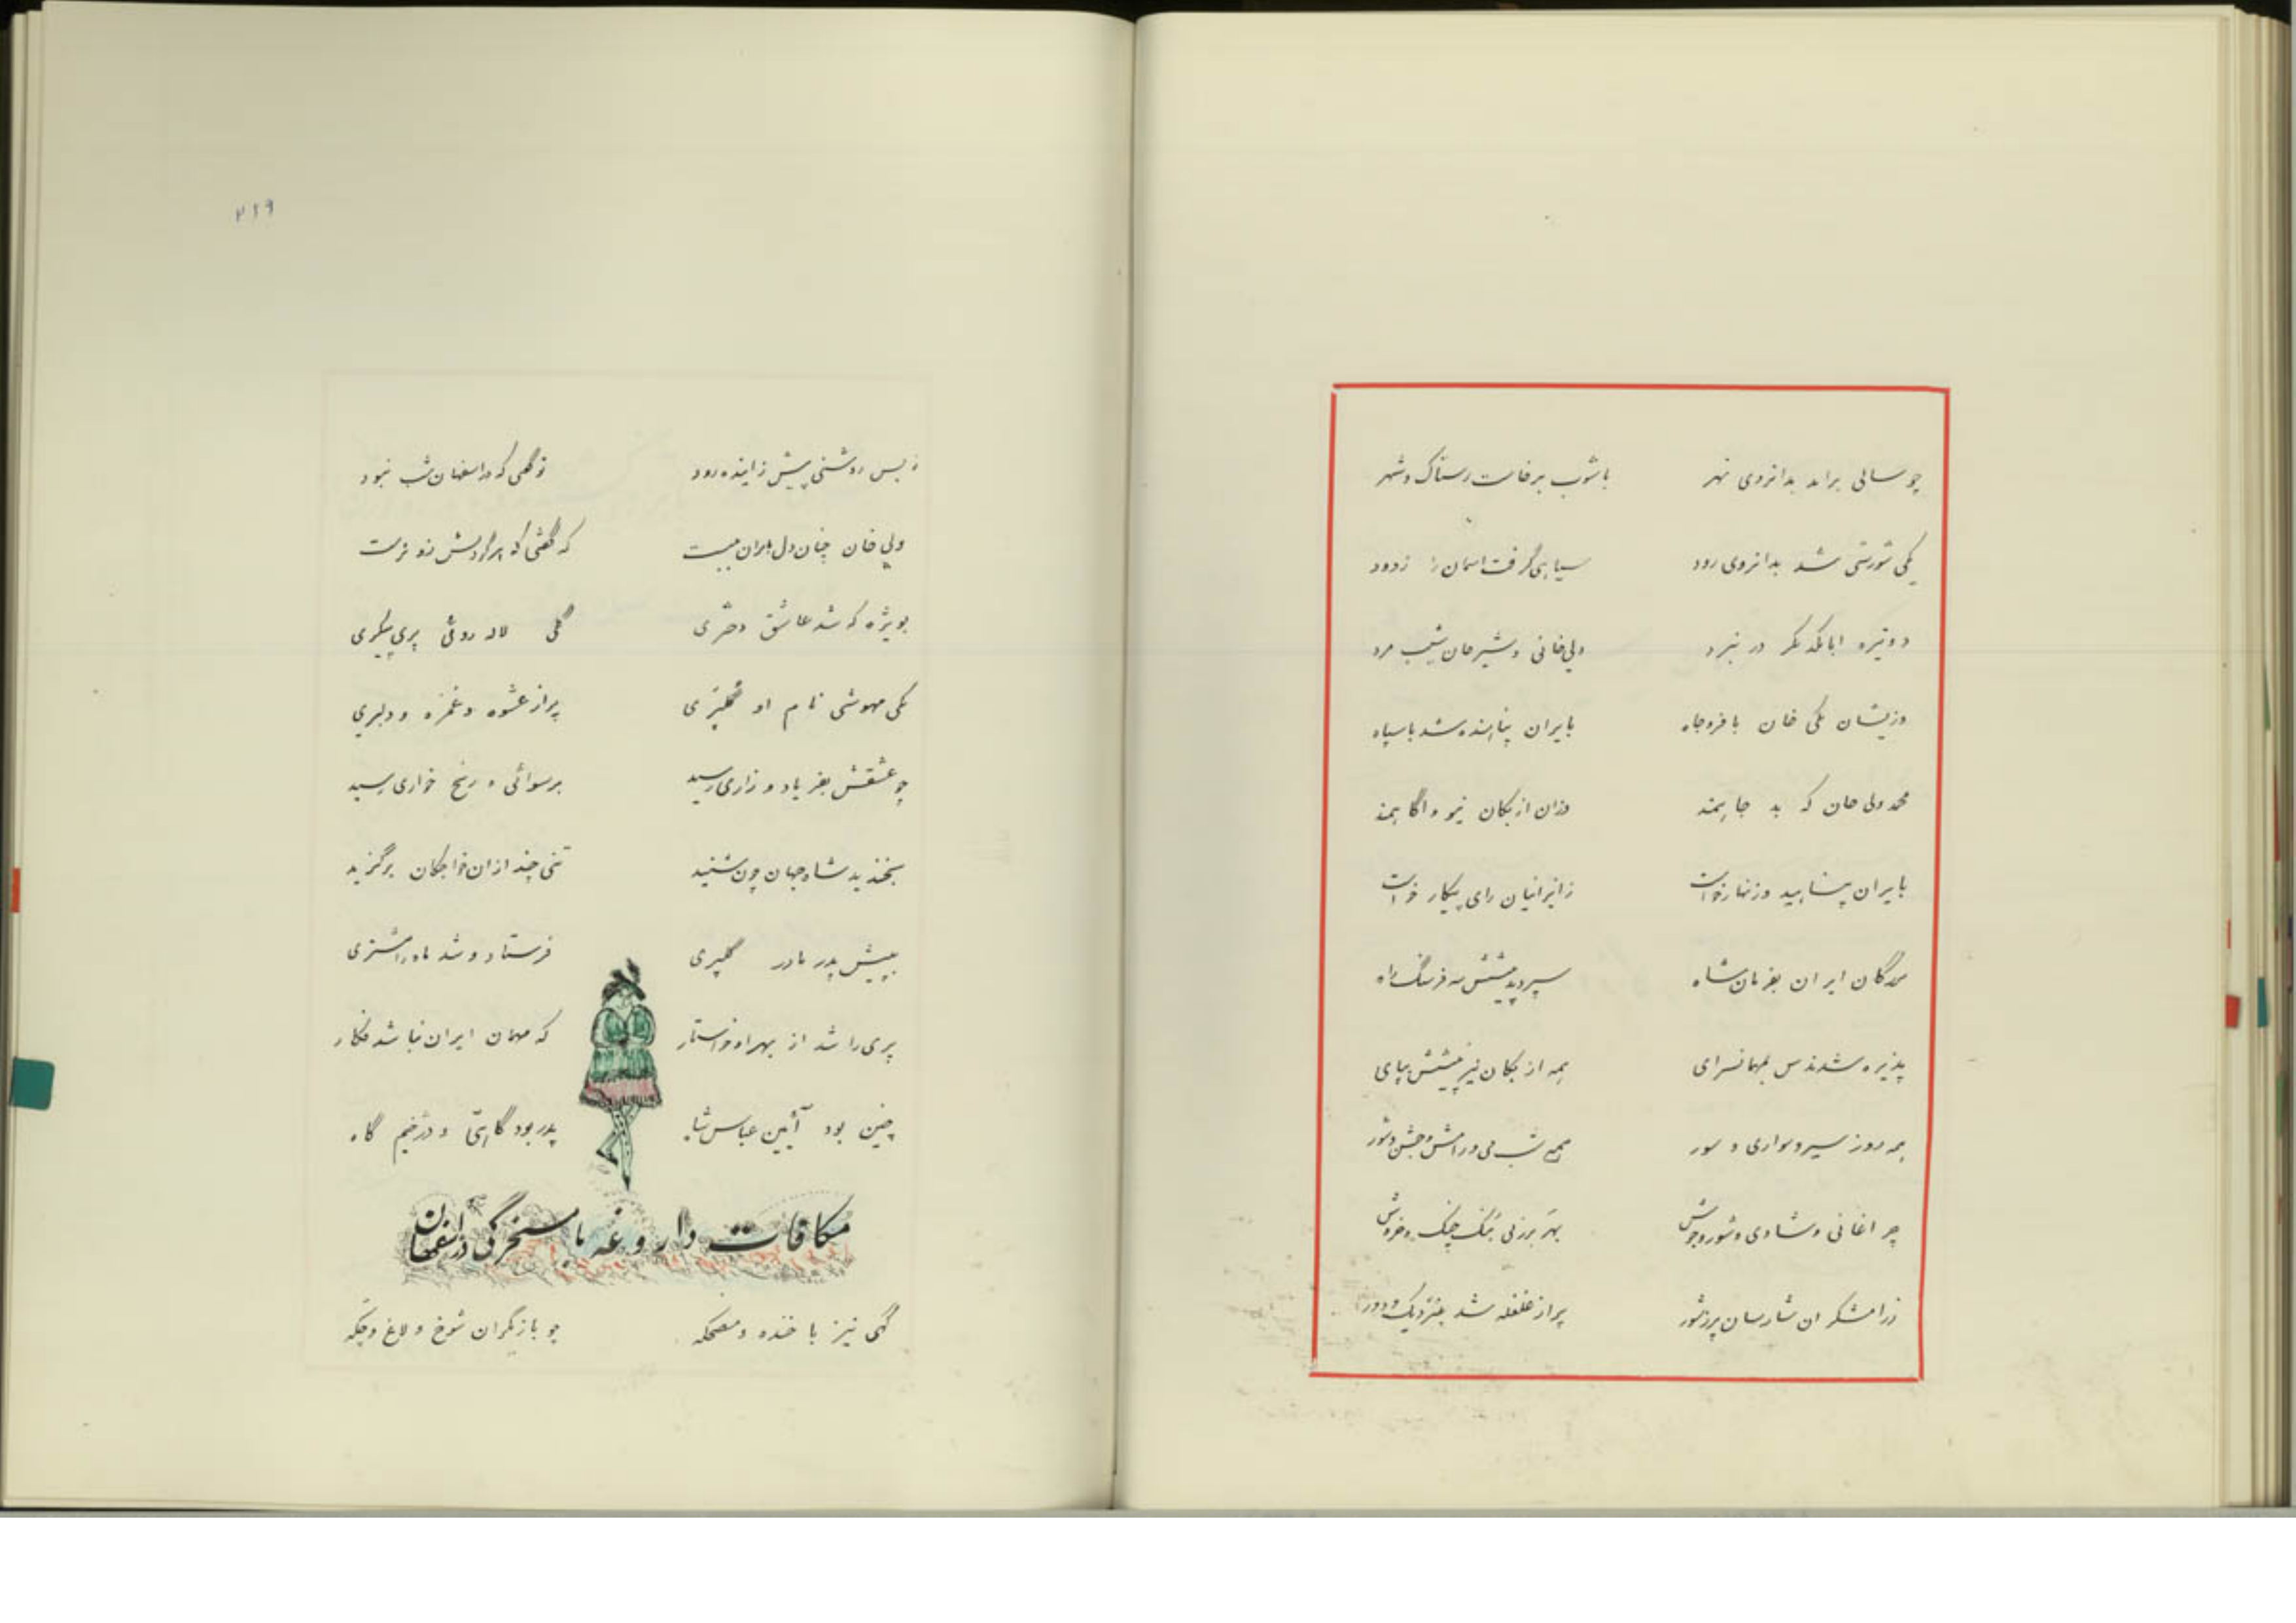 چو سالی برامد بدانروی نهر باشوب برخاست رستاک و شهر
یکی شورشی شد بدانروی رود سیاهی گرفت اسمان را زدود
دو تیره ابا یکدیگر در نبرد ولی خانی و شیرخان مرد
وزیشان یکی خان با فر و جاه بایران پناهنده شد با سپاه
محمد ولی خان که بد جاهمند وزان ازبکان نیو و اگاهمند
بایران پناهید و زنهار خواست ز ایرانیان رای پیکار خواست
بزرگان ایران بفرمان شاه پیشش سه فرسنگ راه
پذیره شدندش بمهمانسرای همه ازبکان نیز پیشش بپای
همه روز سیر و سواری و سور همه شب می و رامش و جشن و شور
چراغانی و شادی و شور و جوش بهر برزنی چنگ و خروش
ز رامشگران شارسان پر ز شور پر از غلغله شد بنزدیک و دور
۲۱۹
ز بس روشنی پیش زاینده رود تو گفتی که در اسفهان شب نبود
ولی خان چنان دل بایران ببست که گفتی که
بویژه که شد عاشق دختری گلی لاله روئی پری پیکری
یکی مهوشی نام او گلپری پر از عشوه و غمزه و دلبری
چو عشقش بفریاد و زاری رسید برسوائی و رنج خواری رسید
بخندید شاه جهان چون شنید تنی چند از ان خواجگان برگزید
به پیش پدر مادر گلپری فرستاد و شد ماه را مشتری
پری را شد از بهر او خواستار که مهمان ایران نباشد فکار
چنین بود آئین عباس شاه پدر بود گاهی و دژخیم گاه
مکافات داروغه با مسخرگی در اسفهان
گهی نیز با خنده و مضحکه چو بازیگران شوخ و لاغ و